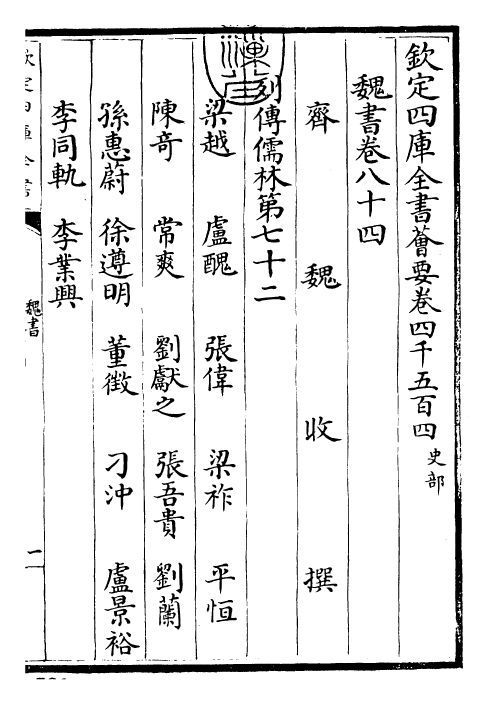 欽定四庫全書薈要卷四千五百四 史部
魏書卷八十四
齊 魏 收 撰
列傳儒林第七十二
梁越 盧醜 張偉 梁祚 平恒
陳奇 常爽 劉獻之 張吾貴 劉蘭
孫惠蔚 徐遵明 董徵 刁沖 盧景裕
李同軌 李業興
欽定四庫全書
魏書
一